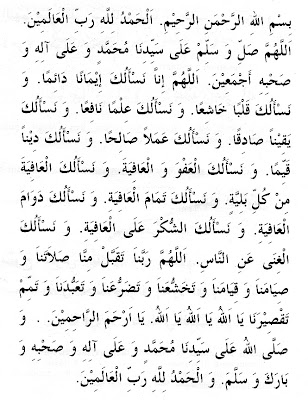 بِسْمِ اللهِ الرَّحْمَنِ الرَّحِيْمِ. اَلْحَمْدُ لِلّهِ رَبِّ الْعَالَمِيْنَ.
اَللَّهُمَّ صَلِّ وَ سَلِّمْ عَلَى سَيِّدِنَا مُحَمَّدٍ وَ عَلَى آلِهِ وَ
صَحْبِهِ أَجْمَعِيْنَ. اَللَّهُمَّ إِناَّ نَسْأَلُكَ إِيْمَانًا دَائِمًا. وَ
نَسْأَلُكَ قَلْبًا خَاشِعًا. وَ نَسْأَلُكَ عِلْمًا نَافِعًا. وَ نَسْأَلُكَ
يَقِيْنًا صَادِقًا. وَ نَسْأَلُكَ عَمَلاً صَالِحًا. وَ نَسْأَلُكَ دِيْناً
قَيِّمًا. وَ نَسْأَلُكَ الْعَفْوَ وَ الْعَافِيَةَ. وَ نَسْأَلُكَ الْعَافِيَةَ
مِنْ كُلِّ بَلِيَّةٍ. وَ نَسْأَلُكَ تَمَامَ الْعَافِيَةِ. وَ نَسْأَلُكَ دَوَامَ
الْعَافِيَةِ. وَ نَسْأَلُكَ الشُّكْرَ عَلَى الْعَافِيَةِ. وَ نَسْأَلُكَ
الْغِنَى عَنِ النَّاسِ. اَللَّهُمَّ رَبَّناَ تَقَبَّلْ مِنَّا صَلاَتَناَ وَ
صِيَامَناَ وَ قِيَامَناَ وَ تَخَشُّعَناَ وَ تَضَرُّعَناَ وَ تَعَبُّدَناَ وَ تَمِّمْ
تَقْصِيْرَناَ يَا اَللهُ يَا اَللهُ يَا اَللهُ. يَا اَرْحَمَ الرَّاحِمِيْنَ. . وَ
صَلَّى اللهُ عَلَى سَيِّدِناَ مُحَمَّدٍ وَ عَلَى آلِهِ وَ صَحْبِهِ وَ
بَارَكَ وَ سَلَّمَ. وَ الْحَمْدُ لِلّهِ رَبِّ الْعَالَمِيْنَ.